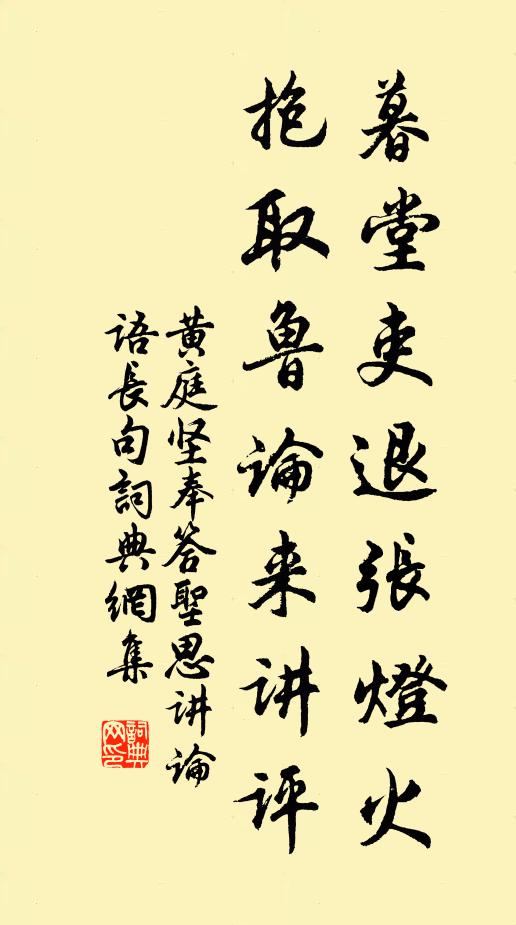 暮堂吏退張燈火
抱取魯论来讲评
黄庭坚奉答聖思讲论
语長句詞典網集
詞典網印